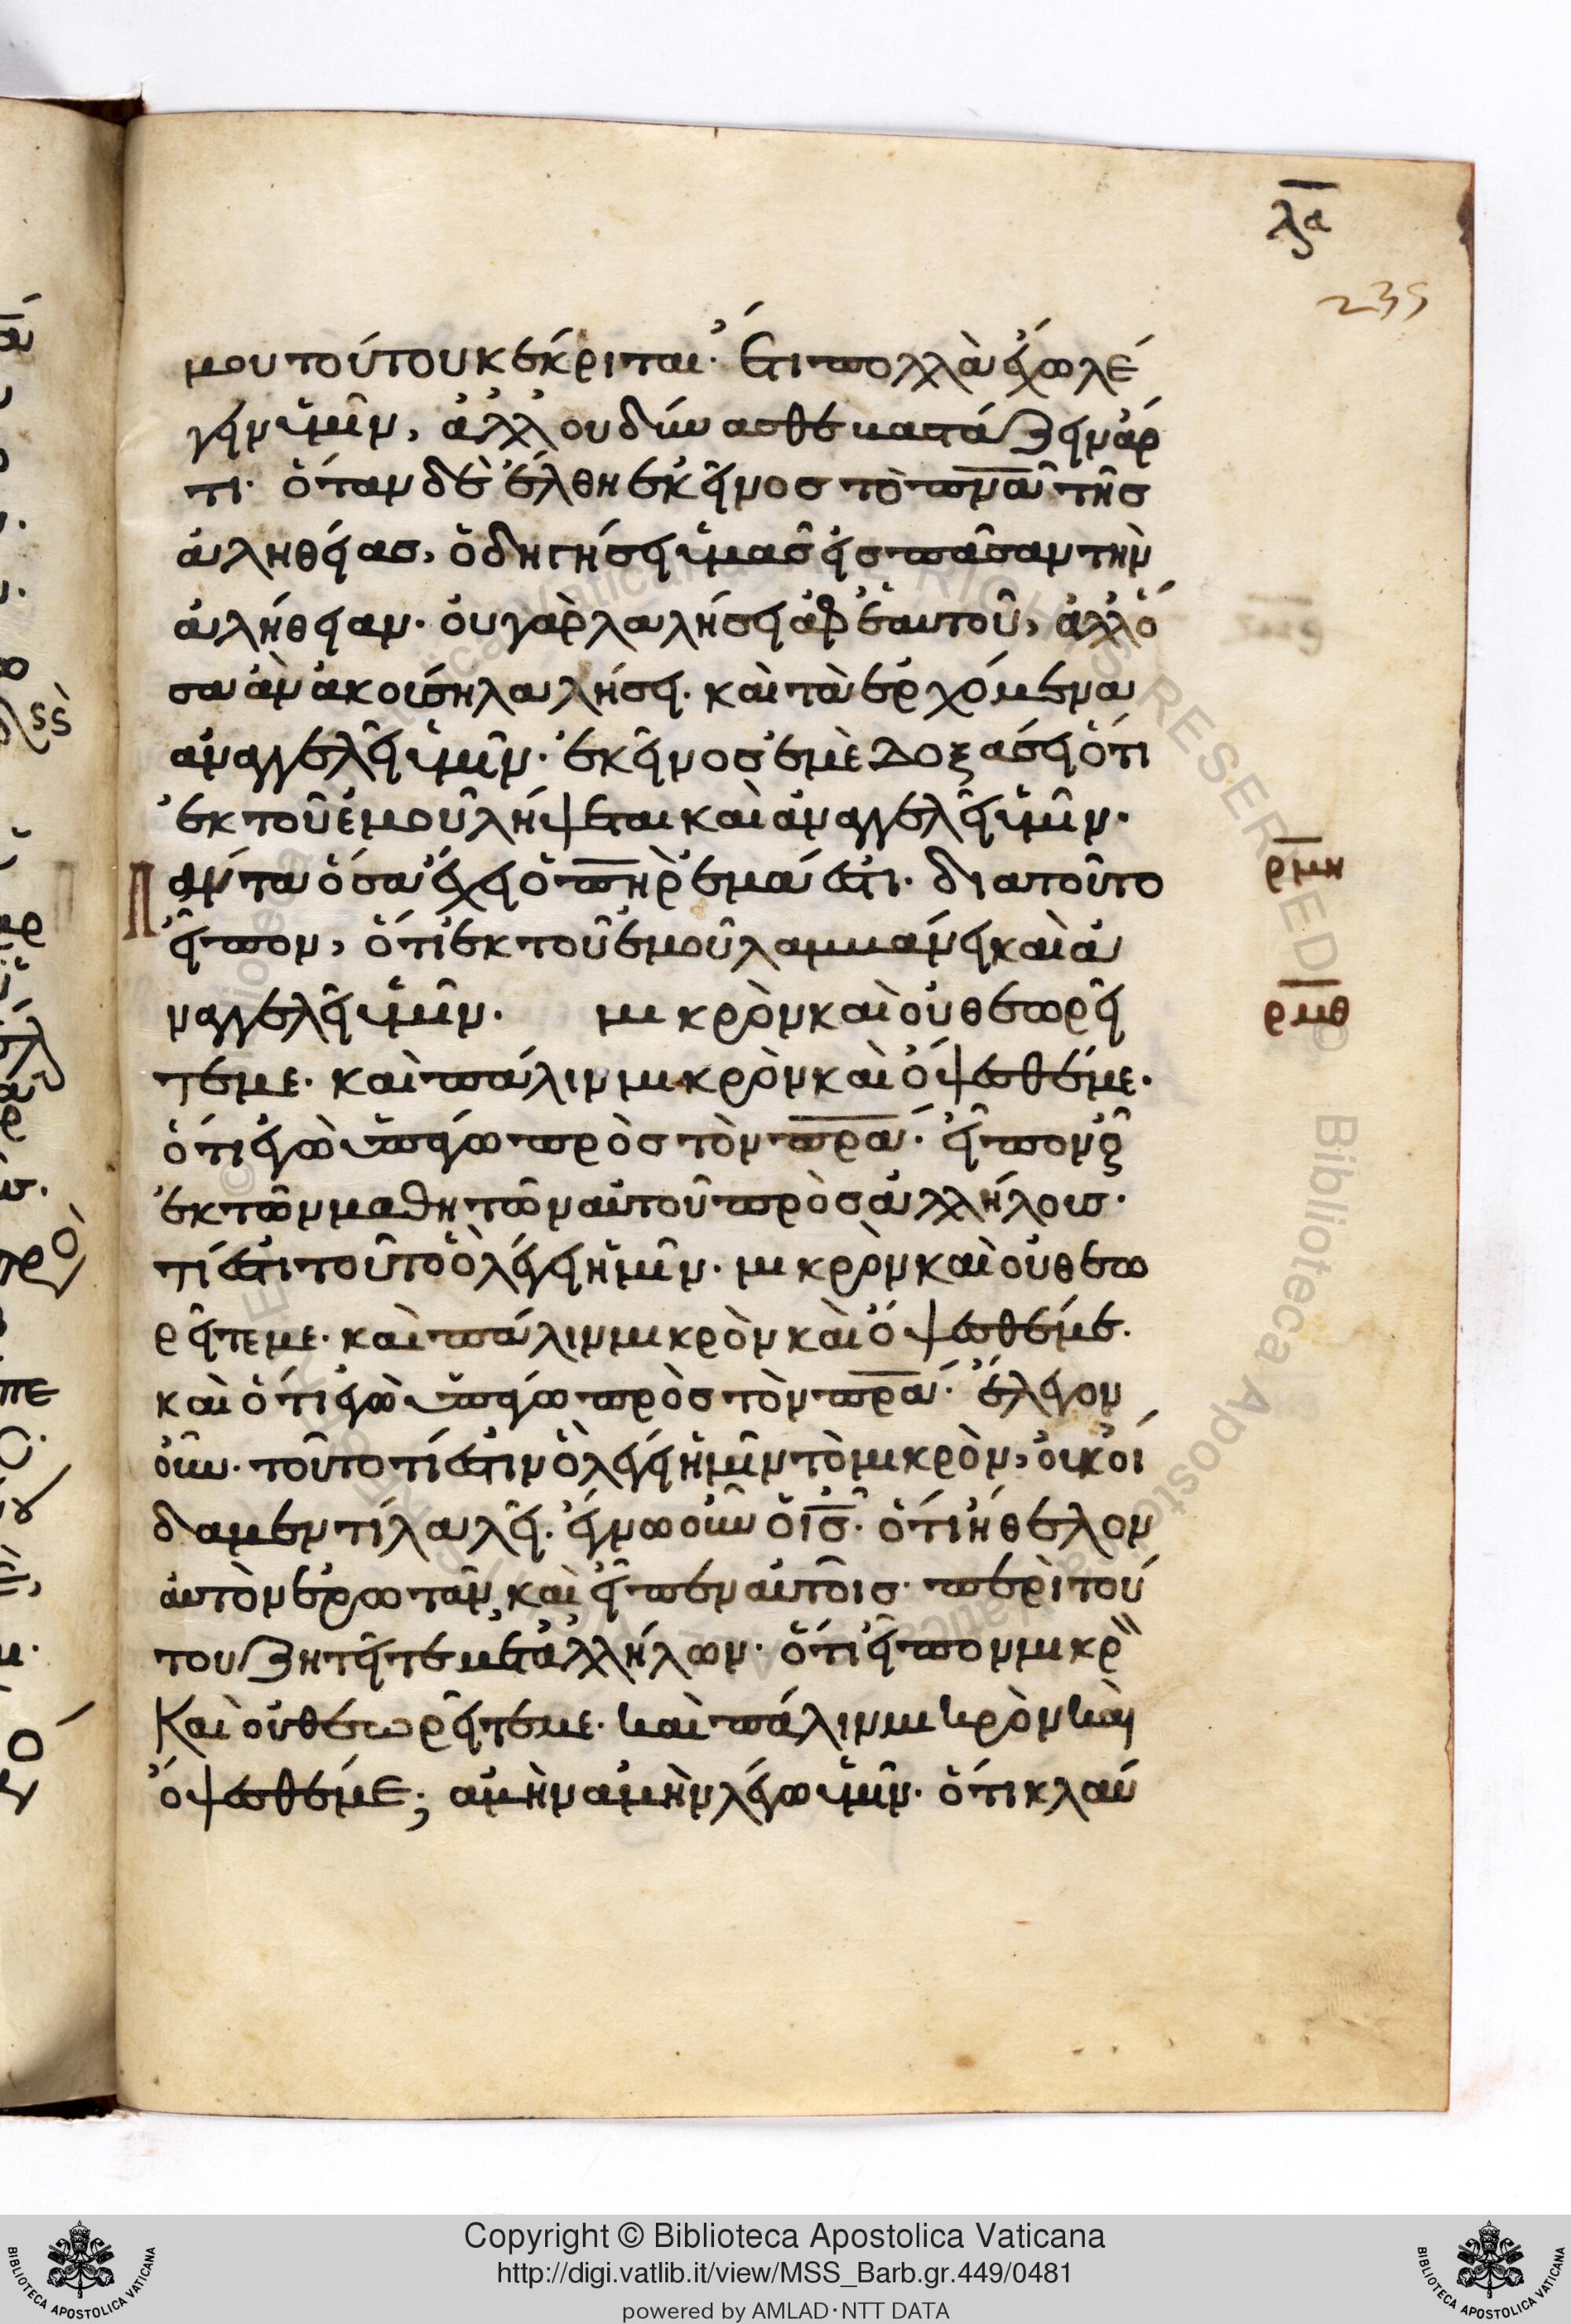 λα
235
μου τούτου κέκριται· Ἔτι πολλὰ ἔχω λέ
γειν ὑμῖν, ἀλλ' ου δύνασθε κατάζειν ἀρ
τι· ὅταν δὲ ἔλθη ἐκεῖνος τὸ πνᾶ τῆς
ἀληθείας, ὁδηγήσει ὑμᾶς εἰς πᾶσαν τὴν
ἀλήθειαν· οὐ γὰρ λαλήσει ἀφ' ἑαυτοῦ, ἀλλ' ὅ
σα ἂν ἀκούση λαλήσει· καὶ τὰ ἐρχόμενα
ἀναγγελεῖ ὑμῖν· ἐκεῖνος ἐμὲ δοξάσει ὅτι
ἐκ τοῦ ἐμοῦ λήψεται καὶ ἀναγγελεῖ ὑμῖν·
Πάντα ὅσα ἔχει ὁ πηρ ἐμά ἐστι· δια τοῦτο
ρμη
εἶπον, ὅτι ἐκ τοῦ ἐμοῦ λαμμάνει καὶ ἀ
ναγγελεῖ ὑμῖν· μικρὸν καὶ οὐ θεωρεῖ
ρμθ
τέ με· καὶ πάλιν μικρὸν καὶ ὄψεσθέ με·
ὅτι ἐγὼ ὑπάγω πρὸς τὸν πρα· εἶπον οὖν
ἐκ τῶν μαθητῶν αὐτοῦ πρὸς ἀλλήλους·
τί ἐστι τοῦτο ὃ λέγει ἡμῖν· μικρὸν καὶ οὐ θεω
ρεῖτε με· καὶ πάλιν μικρὸν καὶ ὄψεσθέ με·
καὶ ὅτι ἐγὼ ὑπάγω πρὸς τὸν πρα· ἔλεγον
οὖν· τοῦτο τί ἐστιν ὃ λέγει ἡμῖν τὸ μικρὸν, οὐκ οί
δαμεν τί λαλεῖ· ἔγνω οὖν ὁ ις· ὅτι ἤθελον
αὐτὸν ἐρωτᾶν, καὶ εἶπεν αὐτοῖς· περὶ τού
του ζητεῖτε μετ' ἀλλήλων· ὅτι εἶπον μικρ
Καὶ οὐ θεωρεῖτέ με· καὶ πάλιν μικρὸν καὶ
ὄψεσθέ με; ἀμὴν ἀμὴν λέγω ὑμῖν· ὅτι κλαύ
Copyright © Biblioteca Apostolica Vaticana
http://digi.vatlib.it/view/MSS_Barb.gr.449/0481
powered by AMLAD·NTT DATA
BIBLIOTECA APOSTOLICA VATICANA
BIBLIOTECA APOSTOLICA VATICANA